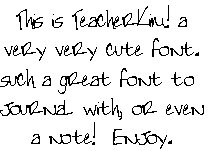 This is TeacherKim! a
very very cute font.
such a great font to
journal with, or even
a note! Enjoy.